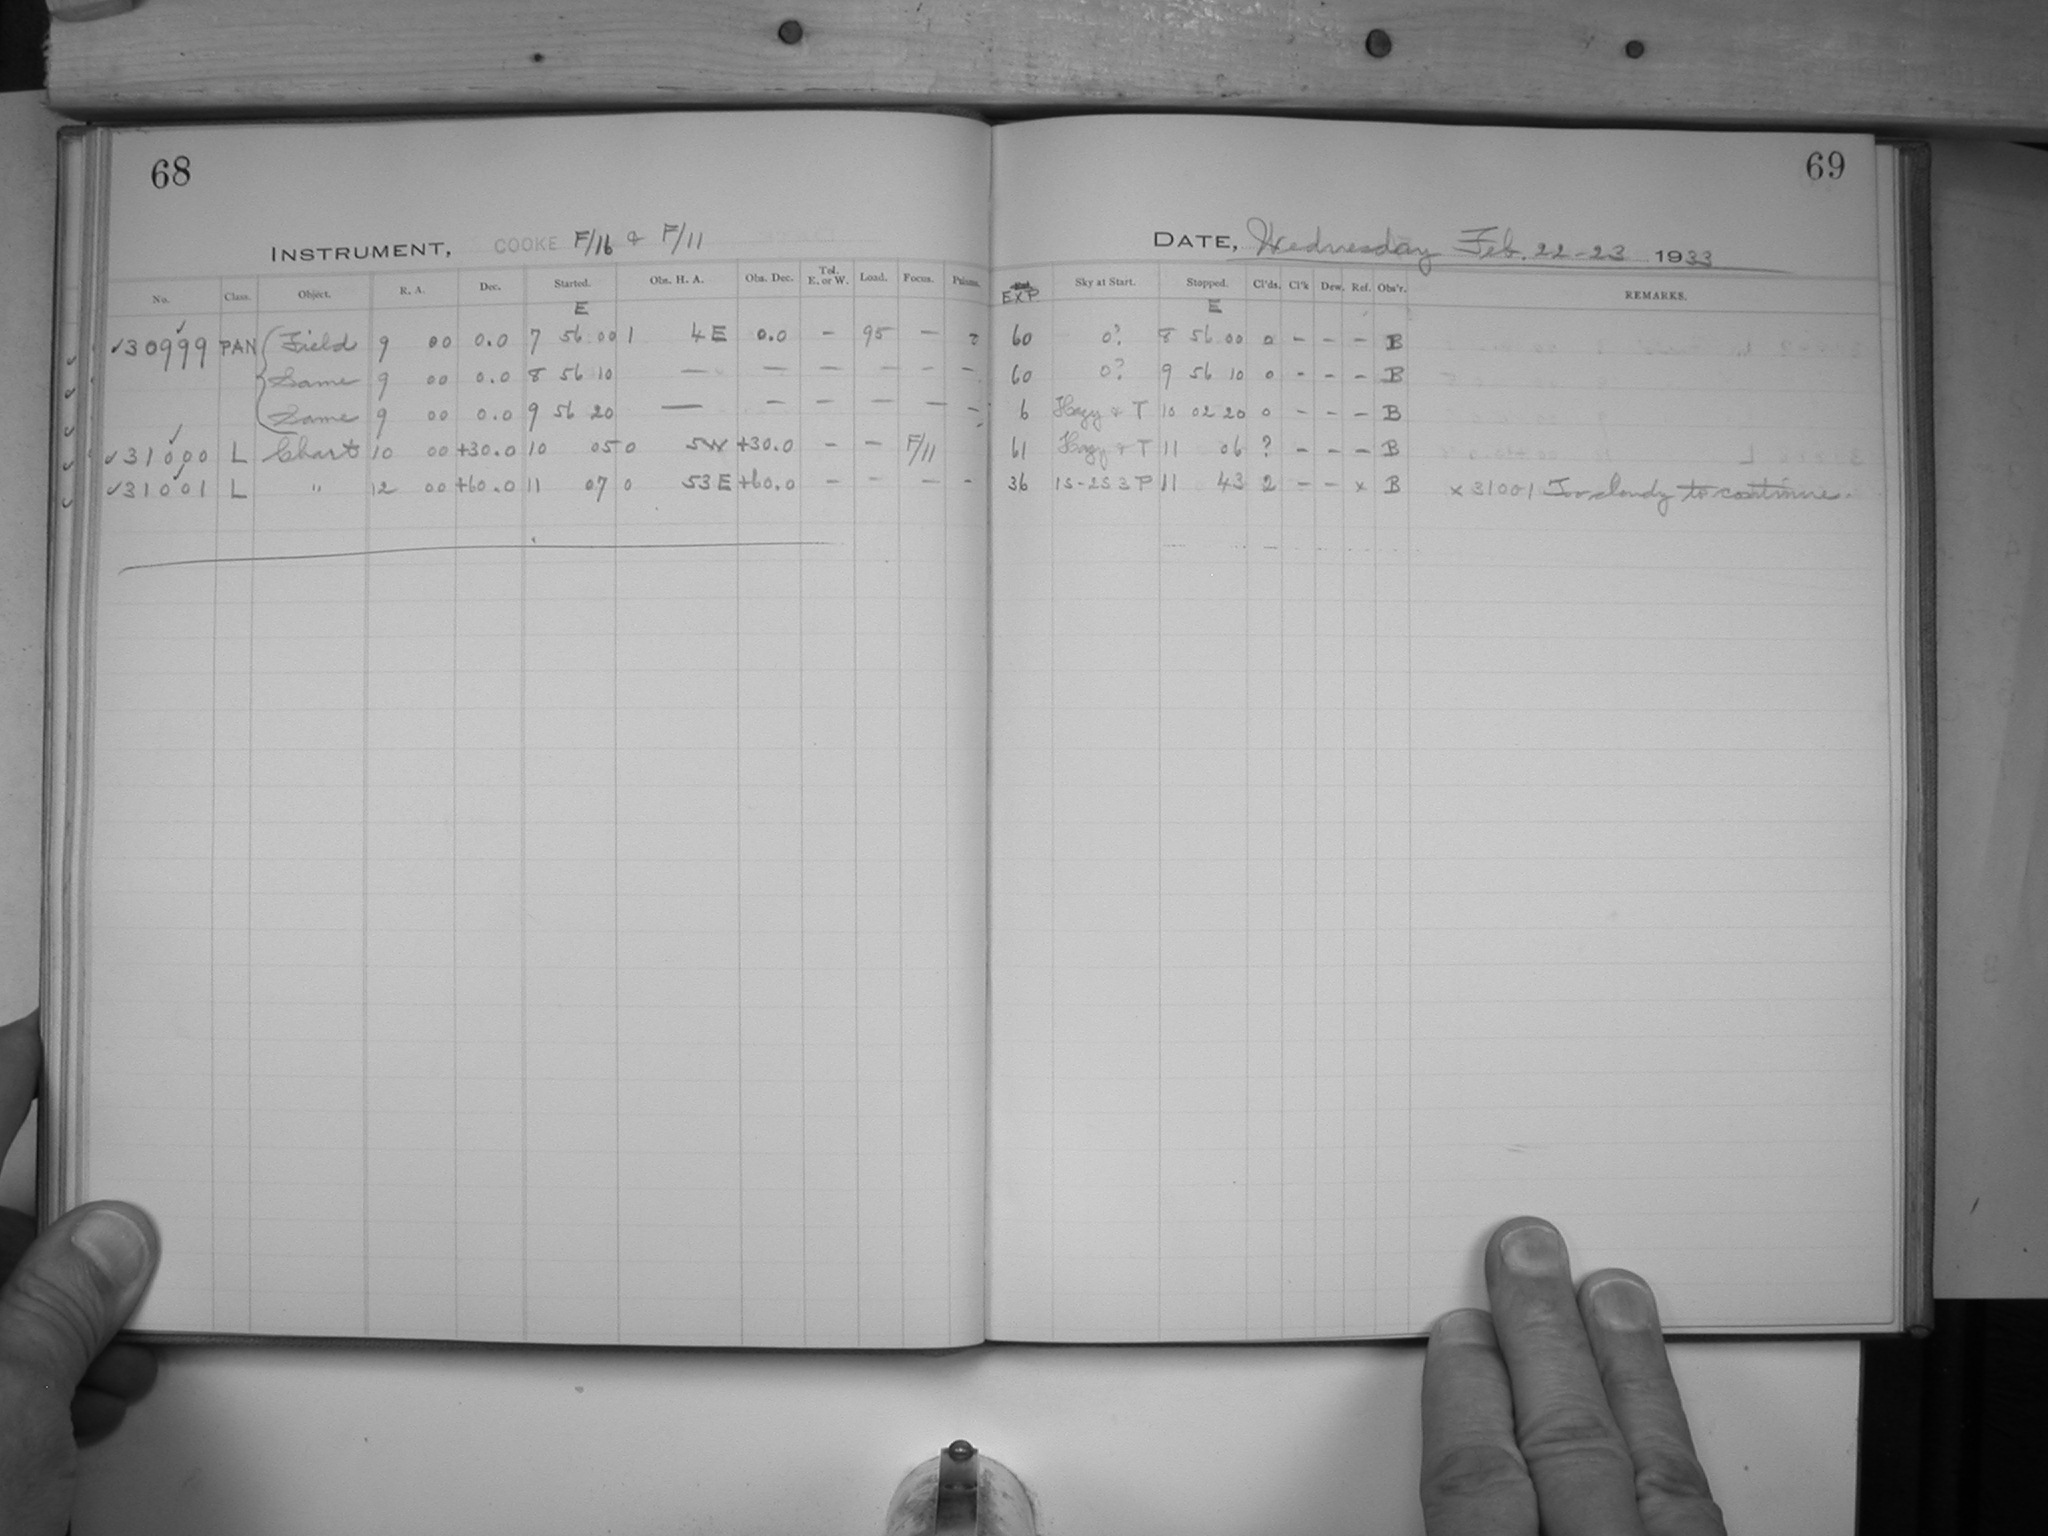 68
INSTRUMENT, COOKE F/16 & F/11
No. Class. Object. R. A. Dec. Started. Obs. H. A. Obs. Dec. Tel. E. or W. Load. Focus.
E
✓30999 PAN Field 9 00 0.0 7 56 00 1 4 E 0.0 – 95 – ?
Same 9 00 0.0 8 56 10 — — — — – –
Same 9 00 0.0 9 56 20 — — — — — –
✓31000 L Chart 10 00 +30.0 10 05 0 5W +30.0 – – F/11
✓31001 L " 12 00 +60.0 11 07 0 53 E +60.0 – – – –
69
DATE, Wednesday Feb. 22-23 1933
EXP Sky at Start. Stopped. Cl'ds. Cl'k Dew. Ref. Obs'r. REMARKS.
E
60 0? 8 56 00 0 – – – B
60 0? 9 56 10 0 – – – B
6 Hazy & T 10 02 20 0 – – – B
61 Hazy & T 11 06 ? – – – B
36 1S-2S 3 P 11 43 2 – – x B x 31001 Too cloudy to continue.